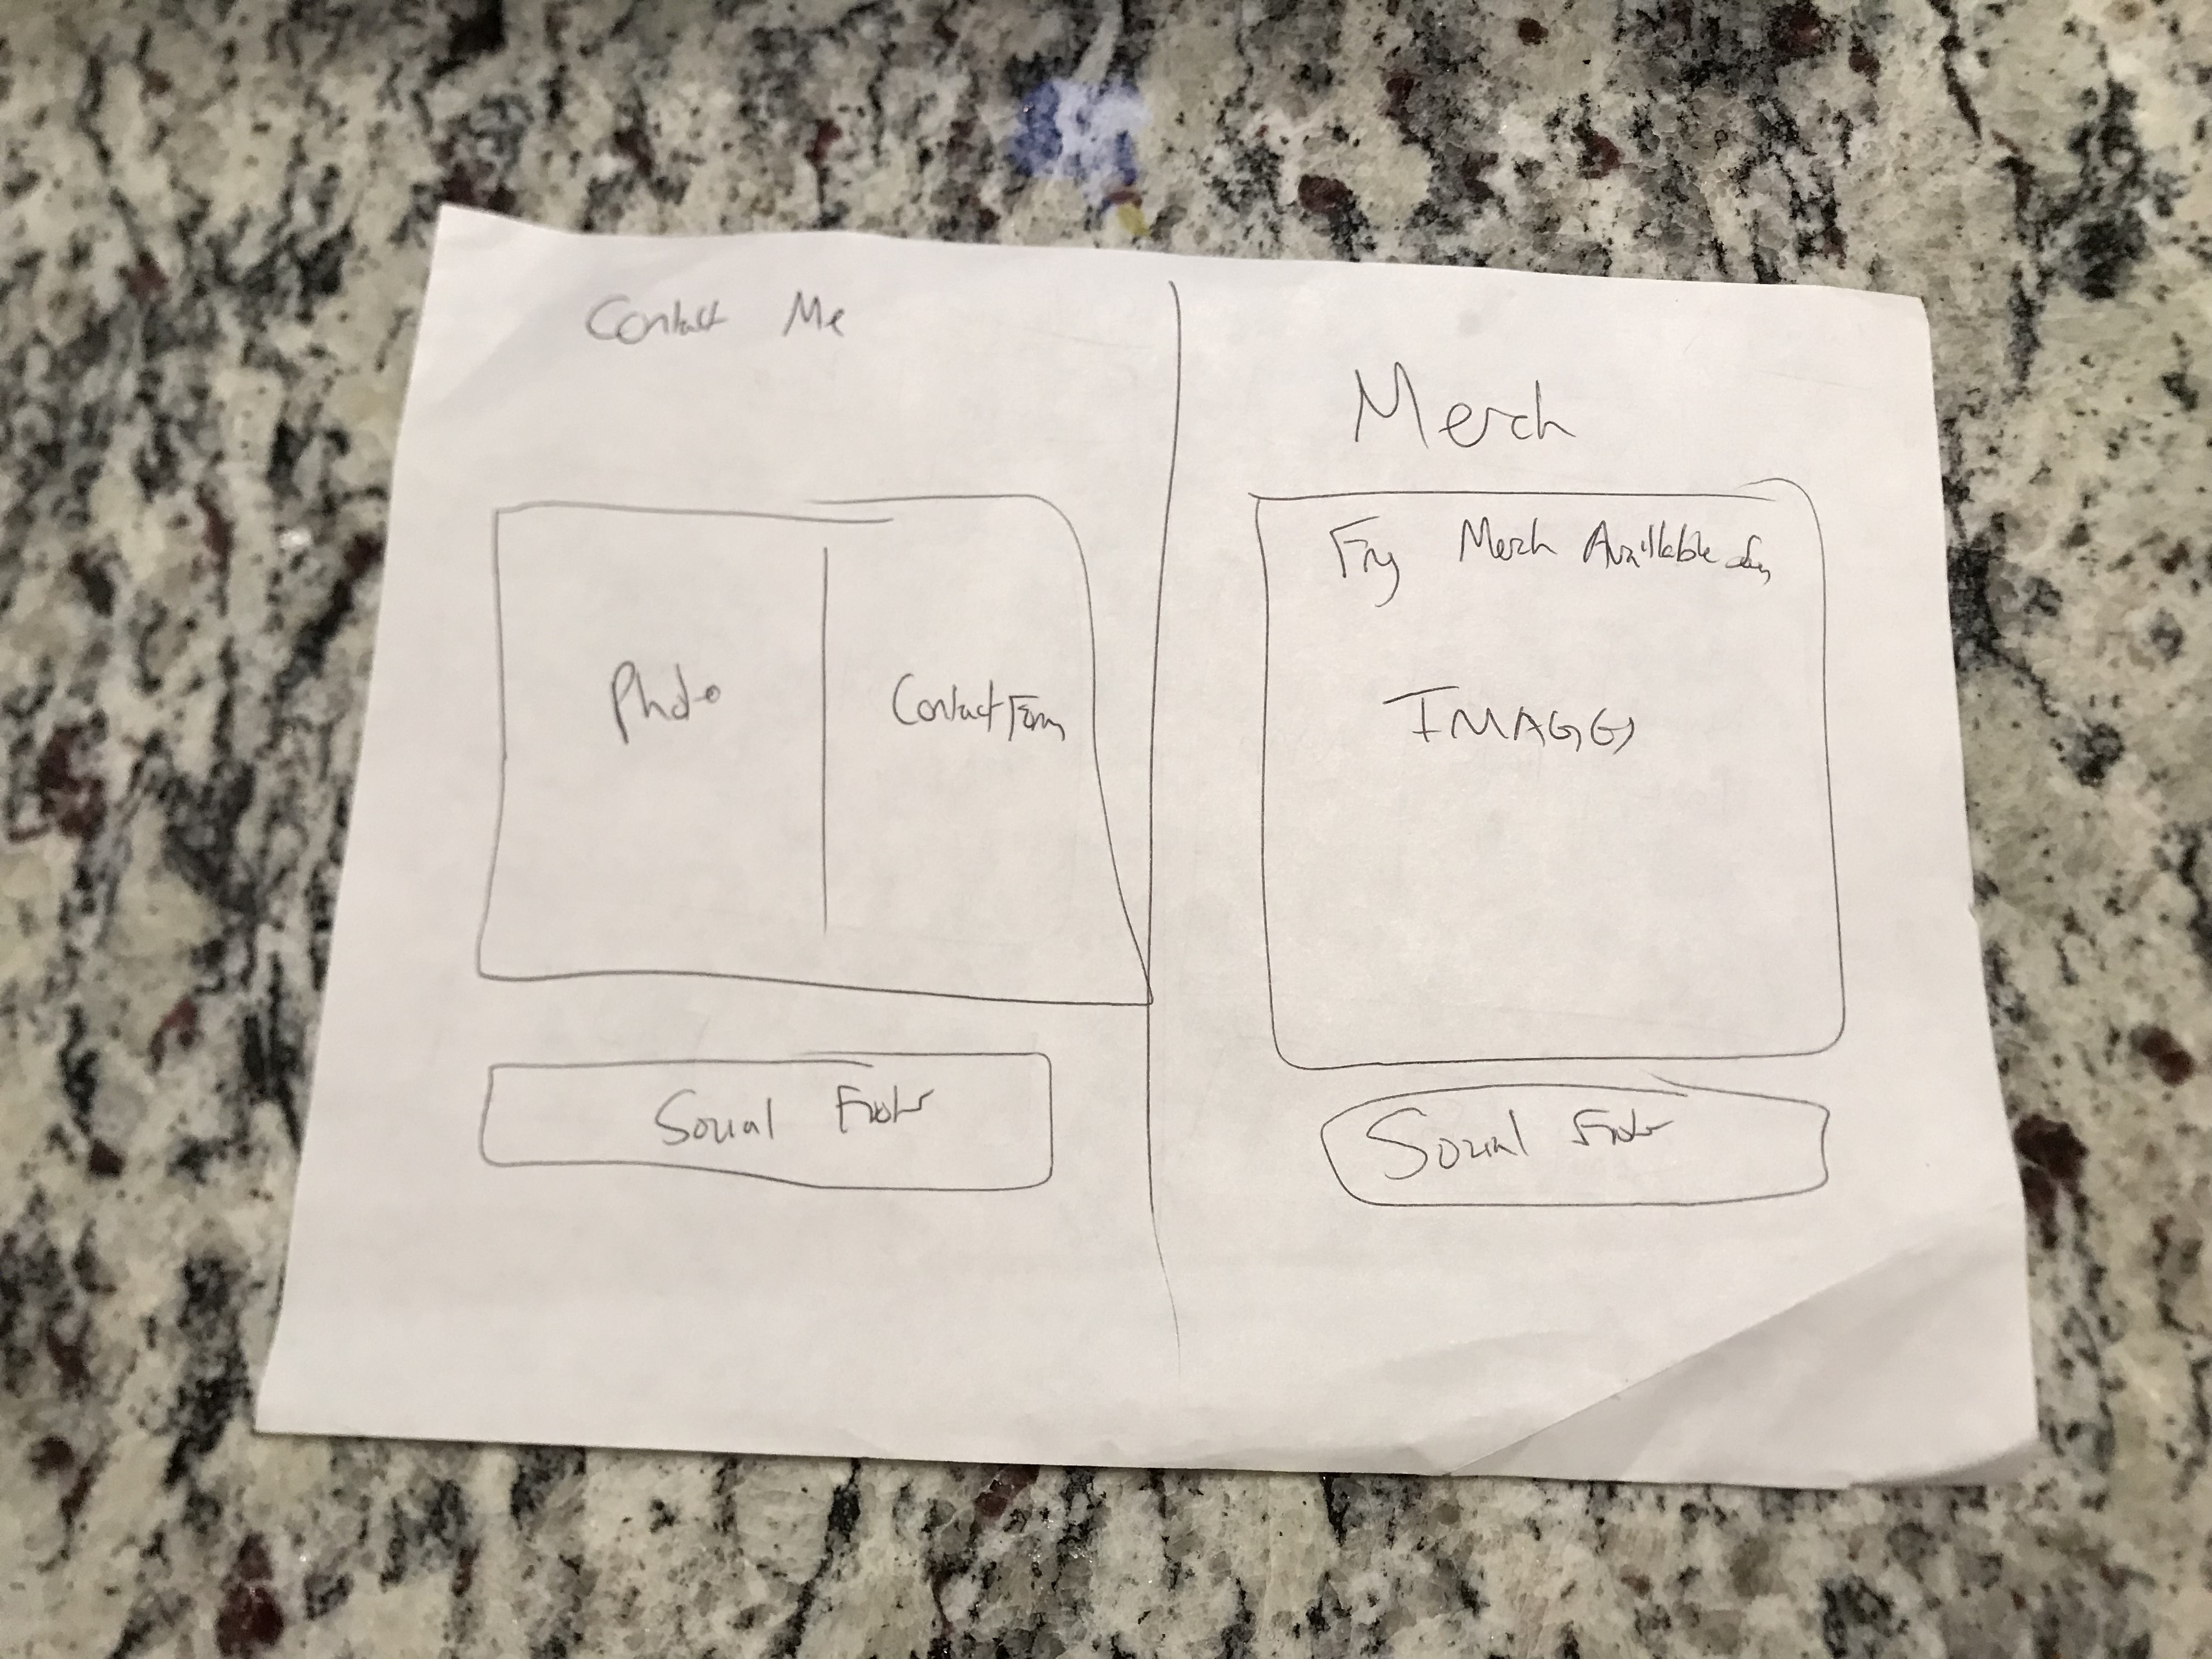 Contact Me
Photo
Contact Form
Social Footer
Merch
Fry Merch Available
IMAGE
Social Footer